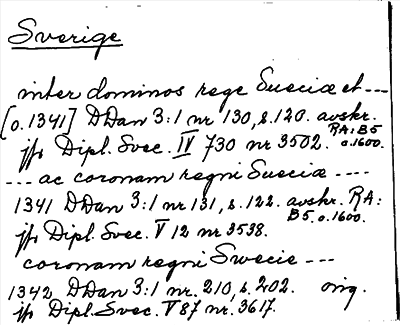 Sverige
inter dominos rege Sueciæ et ---
[o.1341] DDan 3:1 nr 130, s.120. avskr. RA: B5 o.1600.
jfr Dipl. Svec. IV 730 nr 3502.
... ac coronam regni Sueciæ ----
1341 DDan 3:1 nr 131, s.122. avskr. RA: B5. o.1600.
jfr Dipl. Svec. V 12 nr 3538.
coronam regni Swecie ---
1342 DDan 3:1 nr. 210, s. 202. orig.
jfr Dipl. Svec. V 87 nr 3617.